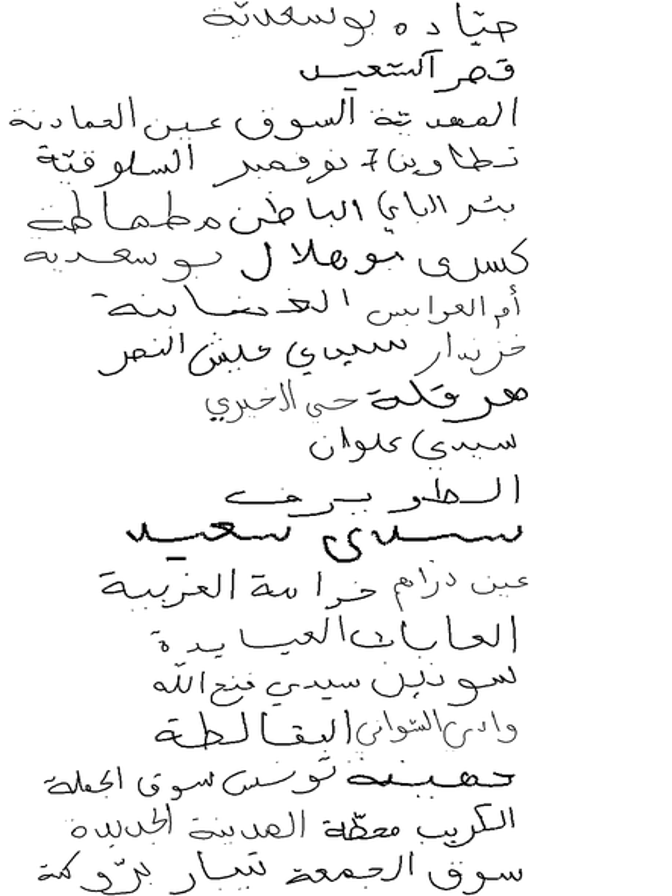 بوسعديّة
قصر السّعيد
السوق عين العمادنة
تطاوين 7 نوفمبر السلوقيّة
بئر الباي الباطن مطماطة
كسرى بوهلال بوسعدية
أم العرايس الغضابنة
خزندار سيدي عيش النصر
هرقلة حي الاخيري
سيدي علوان
الطويرف
سيدي سعيد
عين دراهم العزيبة
الغابات العيايدة
سيدي فتح الله
وادي الشواني البقالطة
تونس سوق الجملة
الكريب محطّة المدينة الجديدة
سوق الجمعة تيبار